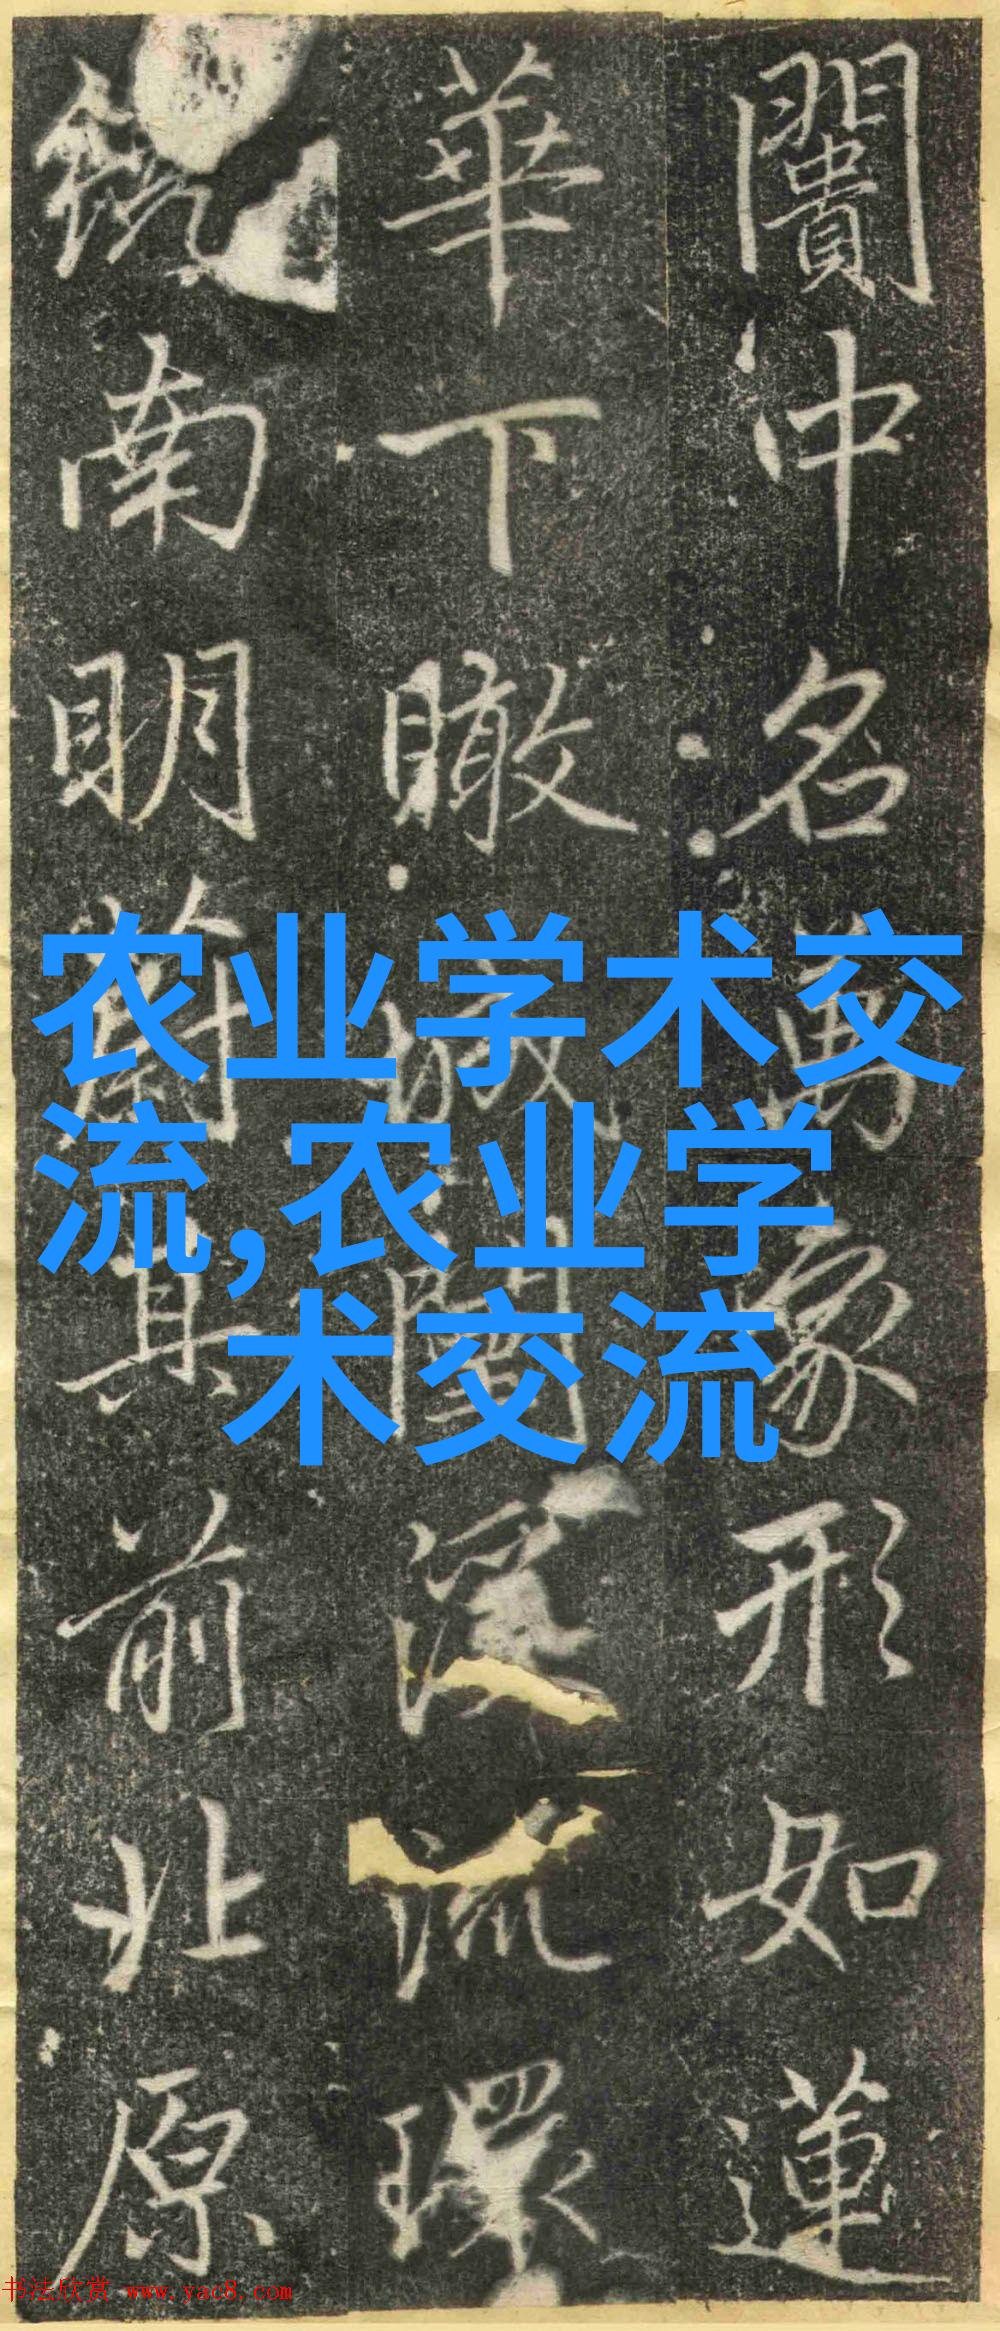 闠冲名萬象形如蓮
華下瞰城流環
南明其前北原
农业学术交
流,农业学
术交流
书法欣赏 www.yac8.com